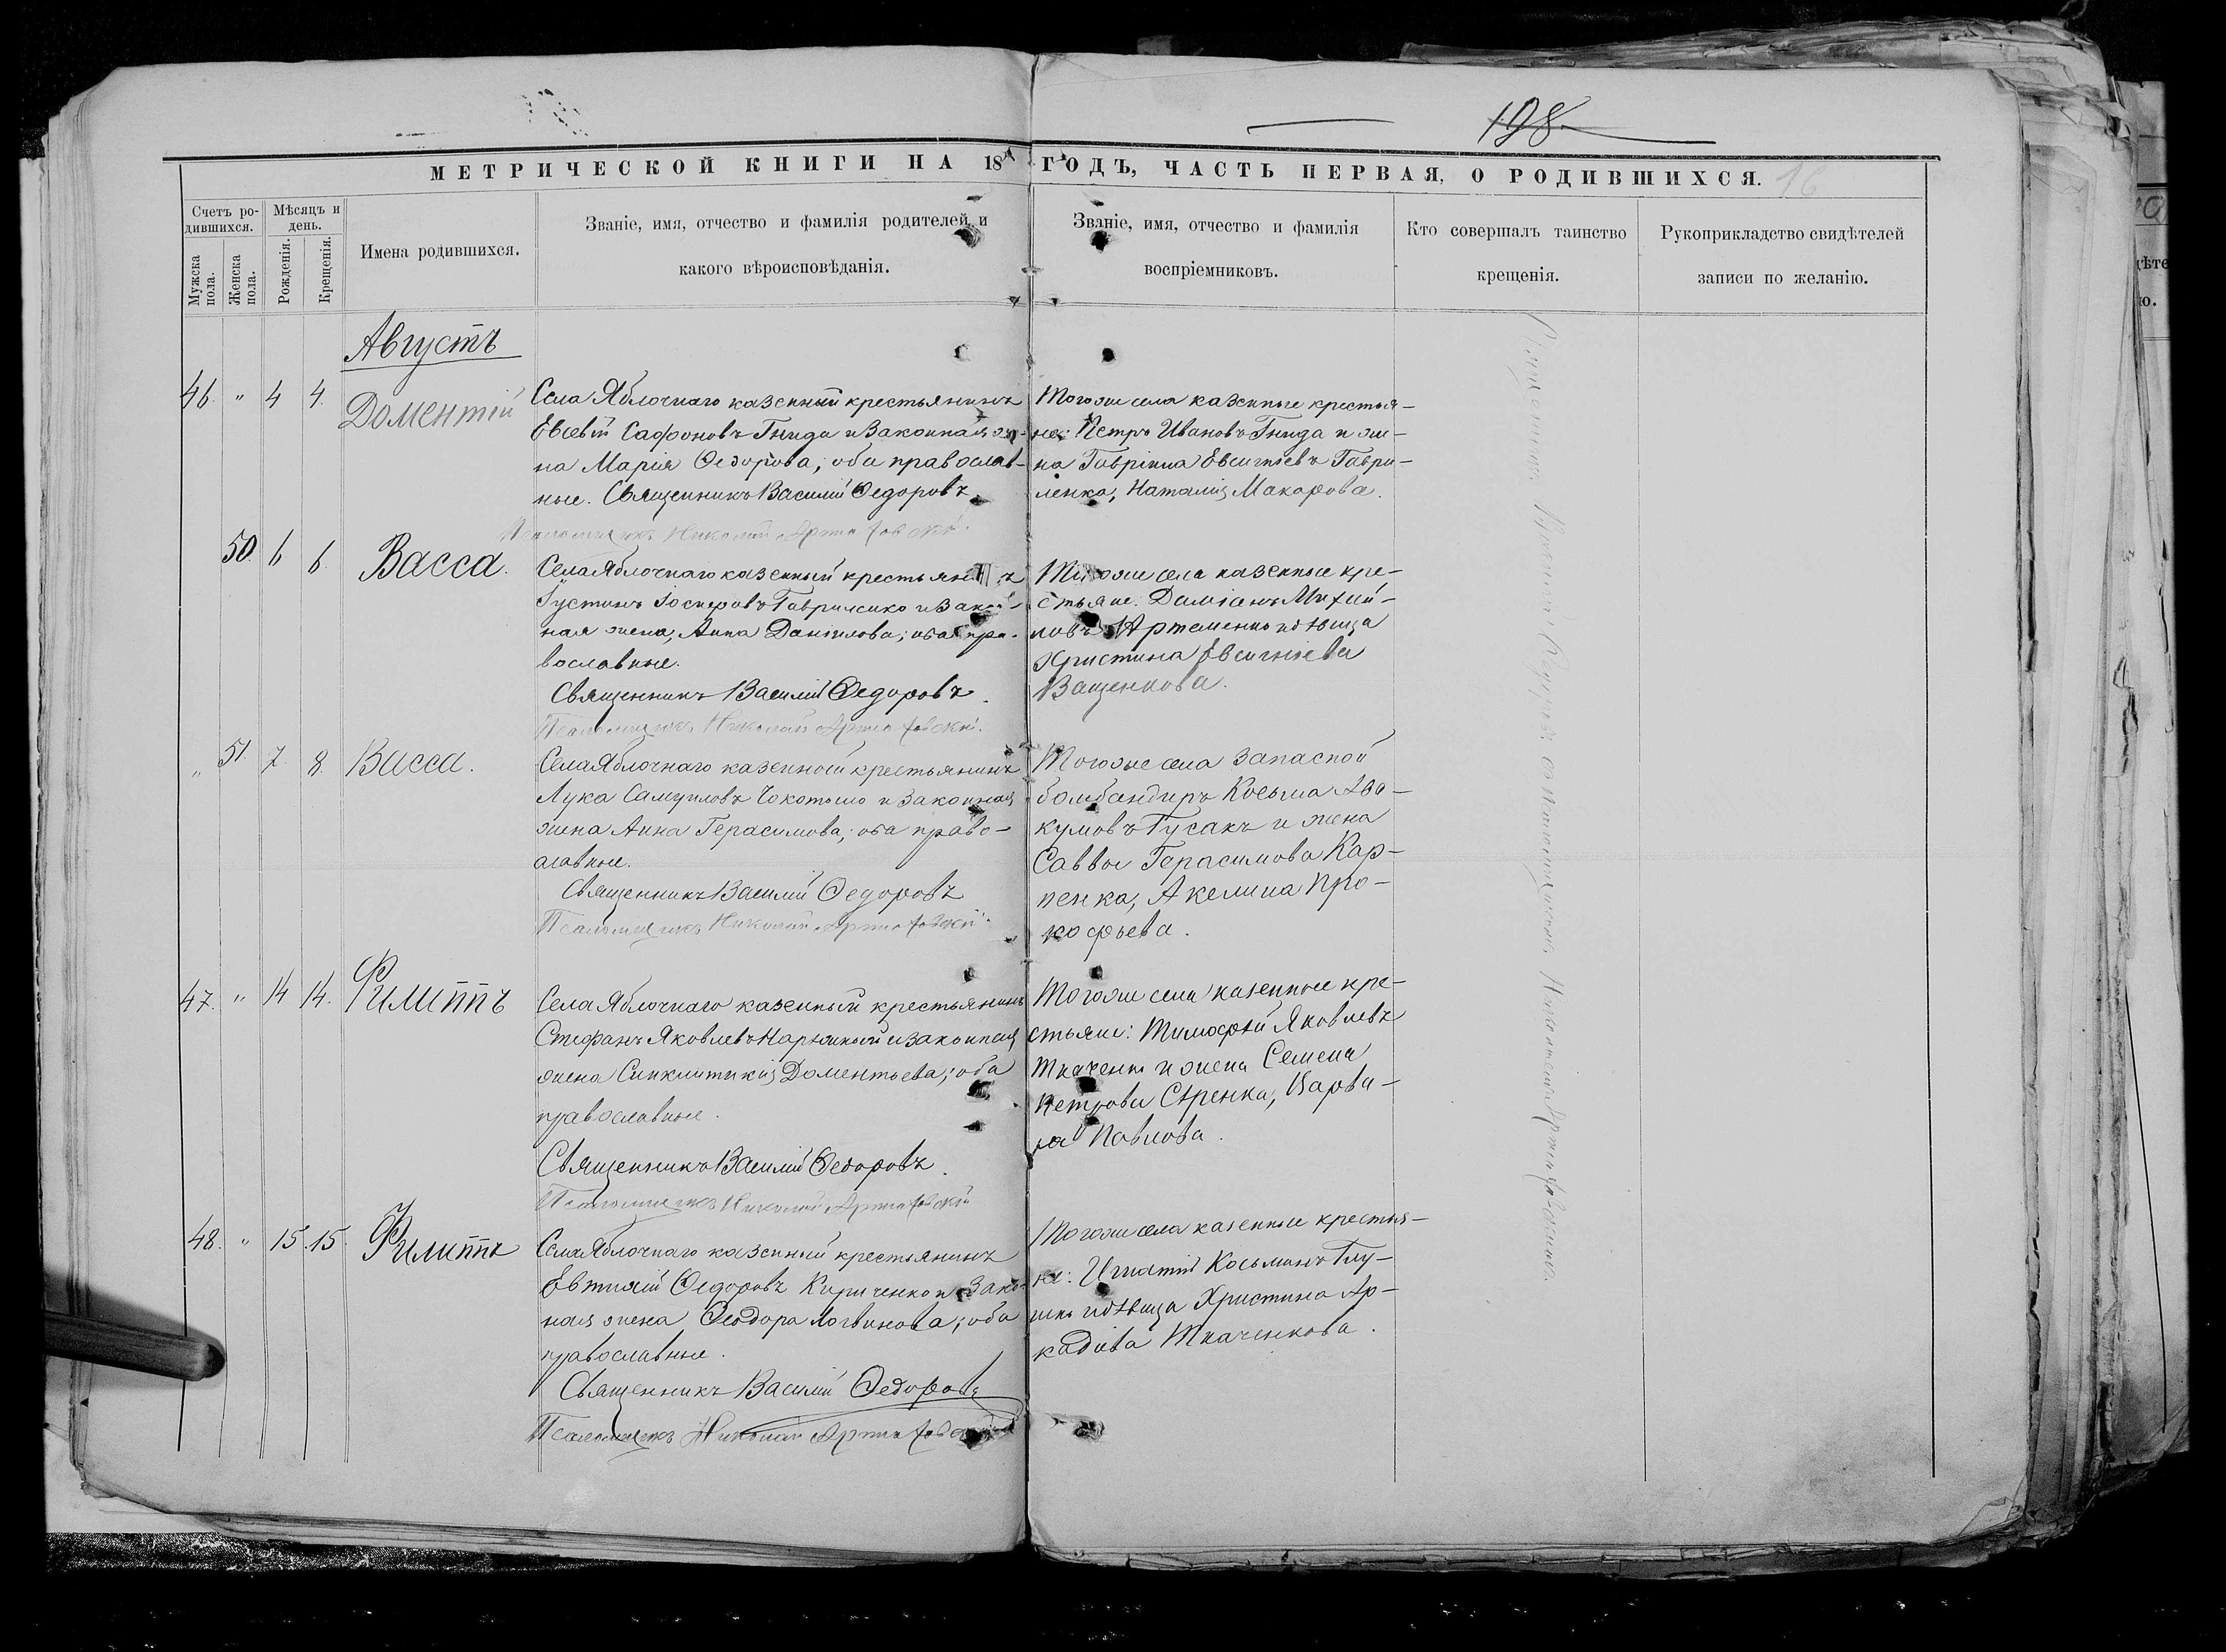 198
МЕТРИЧЕСКОЙ КНИГИ НА 18 ГОДЪ, ЧАСТЬ ПЕРВАЯ, О РОДИВШИХСЯ.
16
Счетъ ро-
дившихся.
Мужска пола.
Женска пола.
Мѣсяцъ и
день.
Рожденія.
Крещенія.
Имена родившихся.
Званіе, имя, отчество и фамилія родителей и
какого вѣроисповѣданія.
Званіе, имя, отчество и фамилія
воспріемниковъ.
Кто совершалъ таинство
крещенія.
Рукоприкладство свидѣтелей
записи по желанію.
Августъ
46. " 4 4. Доментій
Села Яблочнаго казенный крестьянинъ
Евсевій Сафоновъ Гнида и законная же-
на Марія Ѳедорова; оба православ-
ные. Священникъ Василій Ѳедоровъ
Псаломщикъ Николай
Тогоже села казенные крестья-
не: Петръ Ивановъ Гнида и же-
на Гавріила Евсигніевъ Гаври-
ленка, Наталія Макарова.
50. 6 6. Васса.
Села Яблочнаго казенный крестьянинъ
Іустинъ Іосифовъ Гавриленко и закон-
ная жена, Анна Даніилова; оба пра-
вославные.
Священникъ Василій Ѳедоровъ.
Псаломщикъ Николай
Тогоже села казенные кре-
стьяне. Даміанъ Михаи-
ловъ Артеменко и дѣвица
Христина Евсигніева
Ващенкова.
" 51. 7. 8. Васса.
Села Яблочнаго казенный крестьянинъ
Лука Самуиловъ и законная
жена Анна Герасимова; оба право-
славные.
Священникъ Василій Ѳедоровъ
Псаломщикъ Николай
Тогоже села запасной
бомбандиръ Косьма Ава-
кумовъ Гусакъ и жена
Саввы Герасимова Кар-
пенка, Акелина Про-
кофьева.
47. " 14 14. Филиппъ
Села Яблочнаго казенный крестьянинъ
Стефанъ Яковлевъ и законная
жена Синклитикія Доментьева; оба
православные.
Священникъ Василій Ѳедоровъ.
Псаломщикъ Николай
Тогоже села казенные кре-
стьяне: Тимофѣй Яковлевъ
Ткаченко и жена Семена
Петрова Варва-
ра Павлова.
48. " 15. 15. Филиппъ
Села Яблочнаго казенный крестьянинъ
Евтихій Ѳедоровъ Кириченко и закон-
ная жена Ѳеодора Логвинова; оба
православные.
Священникъ Василій Ѳедоровъ
Псаломщикъ Николай
Тогоже села казенные крестья-
не: Игнатій Косьминъ Глу-
шко и дѣвица Христина Ар-
кадіева Ткаченкова.